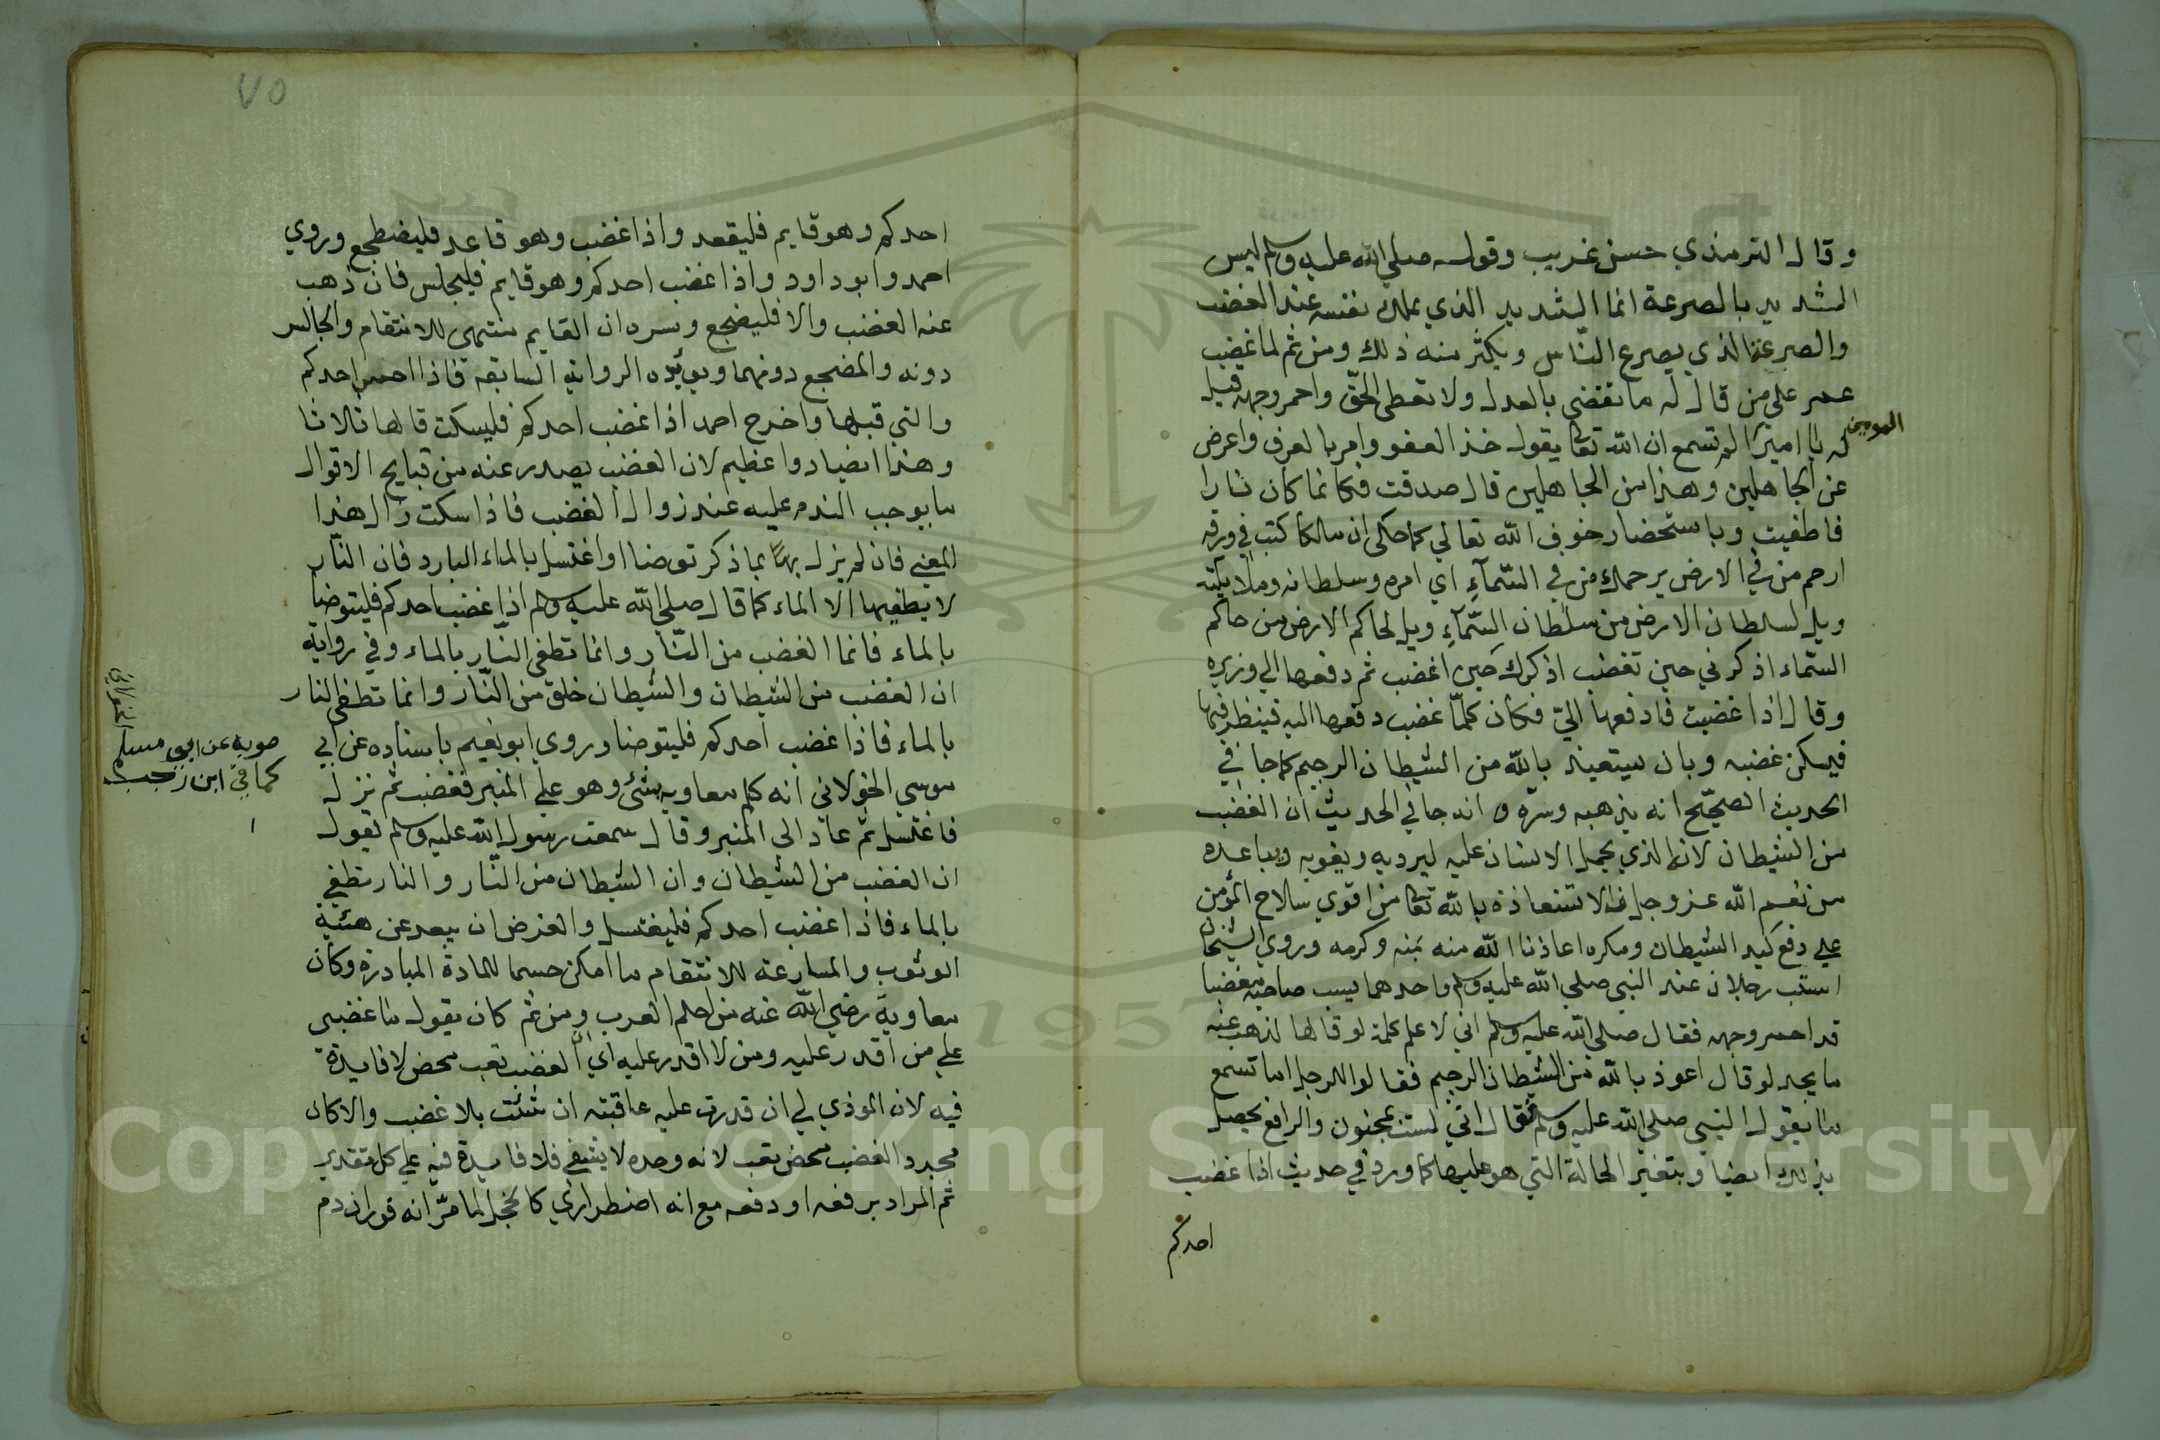 وقال الترمذي حسن غريب وقوله صلي الله عليه وسلم ليس
الشديد بالصرعة انما الشديد الذي يملك نفسه عند الغضب
والصرعة الذي يصرع الناس ويكثر منه ذلك ومن ثم لما غضب
عمر علي من قال له ما تقضي بالعدل ولا تعطي الحق واحمر وجهه قيل
له يا امير المومنين الم تسمع ان الله تعالى يقول خذ العفو وامر بالعرف واعرض
عن الجاهلين وهذا من الجاهلين قال صدقت فكانما كان نارا
فاطفيت وباستحضار خوف الله تعالي كما حكي ان ملكا كتب في ورقه
ارحم من في الارض يرحمك من في السّمآءِ اي امره وسلطانه وملايكته
ويل لسلطان الارض من سلطان السّمآءِ ويل لحاكم الارض من حاكم
السّماء اذكرني حين تغضب اذكرك حين اغضب ثم دفعها الي وزيره
وقال اذا غضبت فادفعها اليّ فكان كلمّا غضب دفعها اليه فينظر فيها
فيسكن غضبه وبان يستعيذ بالله من الشيطان الرجيم كما جا في
الحديث الصحيّح انه يذهبه وسرّه انه جا في الحديث ان الغضب
من الشيطان لانه الذي يحمل الانسان عليه ليرديه ويغويه ويباعده
من نعم الله عز وجل فالاستعاذة بالله تعالى من اقوي سلاح المؤمن
علي دفع كيد الشيطان ومكره اعاذنا الله منه بمنه وكرمه وروي الشيخان
استب رجلان عند النبي صلي الله عليه وسلم واحدهما يسب صاحبه مغضبا
قد احمر وجهه فقال صلي الله عليه وسلم اني لاعلم كلمة لو قالها لذهب عنه
ما يجد لو قال اعوذ بالله من الشيطان الرجيم فقالوا للرجل اما تسمع
ما يقول النبي صلي الله عليه وسلم فقال اني لست بمجنون والرافع يحصل
بذلك ايضا وبتغير الحالة التي هو عليها كما ورد في حديث اذا غضب
احدكم
٧٥
احدكم وهو قايم فليقعد واذا غضب وهو قاعد فليضطجع وروي
احمد وابو داود واذا غضب احدكم وهو قايم فليجلس فان ذهب
عنه الغضب والا فليضجع وسره ان القايم متهيئ للانتقام والجالس
دونه والمضجع دونهما ويؤيده الرواية السابقة فاذا احس احدكم
والتي قبلها واخرج احمد اذا غضب احدكم فليسكت قالها ثلاثا
وهذا ايضا دوا عظيم لان الغضب يصدر عنه من قبايح الاقوال
ما يوجب الندم عليه عند زوال الغضب فاذا سكت زال هذا
المعني فان لم يزل بما ذكر توضا او اغتسل بالماء البارد فان النّار
لا يطفيها الا الماء كما قال صلي الله عليه وسلم اذا غضب احدكم فليتوضا
بالماء فانما الغضب من النّار وانما تطفي النّار بالماء وفي رواية
ان الغضب من الشيطان والشيطان خلق من النّار وانما تطفي النار
بالماء فاذا غضب احدكم فليتوضا وروي ابو نعيم باسناده عن ابي
موسي الخولاني انه كلم معاوية بشئ وهو علي المنبر فغضب ثم نزل
فاغتسل ثم عاد الي المنبر وقال سمعت رسول الله عليه وسلم يقول
ان الغضب من الشيطان وان الشيطان من النّار والنار تطفي
بالماء فاذا غضب احدكم فليغتسل والغرض ان يبعد عن هيئة
الوثوب والمسارعة للانتقام ما امكن حسما للمادة المبادرة وكان
معاوية رضي الله عنه من احلم العرب ومن ثم كان يقول ما غضبي
علي من اقدر عليه ومن لا اقدر عليه اي الغضب تعب محض لا فايدة
فيه لان الموذي لي ان قدرت عليه عاقبته ان شئت بلا غضب والا كان
مجرد الغضب محض تعب لانه وحده لا يشفي فلا فايدة فيه علي كل تقدير
ثم المراد برفعه او دفعه مع انه اضطراري كالخجل لما مرّ انه فوران دم
صوابه عن ابي مسلم
الخولاني
كما في ابن رجب